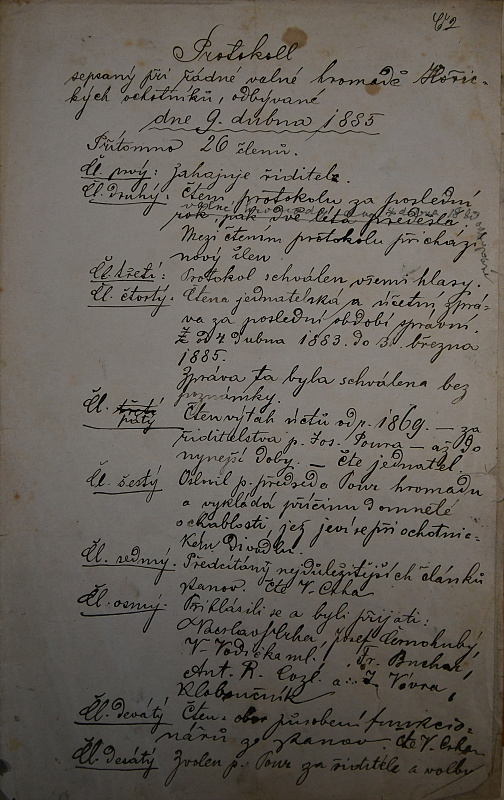 Čís. 2
Protokoll
sepsaný při řádné valné hromadě Hořic-
kých ochotníků, odbývané
dne 9. dubna 1885
Přítomno 26 členů.
Čl. prvý: Zahajuje ředitel.
Čl. druhý: Čtení protokolu za poslední
rok, pak dvě léta předešlá.
Mezi čtením protokolu přichází
nový člen.
Čl. třetí: Protokol schválen všemi hlasy.
Čl. čtvrtý: Čtena jednatelská a účetní zprá-
va za poslední období správní.
Z d 4 dubna 1883. do 3. března
1885.
Zpráva ta byla schválena bez
poznámky.
Čl. třetí
pátý Čten výtah účtů od r. 1869. — za
ředitelstva p. Jos. Poura — až do
nynejší doby. — Čte jednatel.
Čl. šestý Oslovil p. předseda Pour hromadu
a vykládá příčinu domnělé
ochablosti jež jeví se při ochotnic-
kém Divadle.
Čl. sedmý. Předčítány nejdůležitější čl článků
stanov. Čte V. Crha
Čl. osmý. Přihlásili se a byli přijati:
Vácslav Crha, Josef Černohubý,
V. Vodička ml., Fr. Buchar,
Ant. R. Cozl. a: J. Vávra,
Kloboučník
Čl. devátý Čten. obor působení funkcio-
nářů ze stanov. Čte V. Crha
Čl. desátý Zvolen p. Pour za ředitele a volby